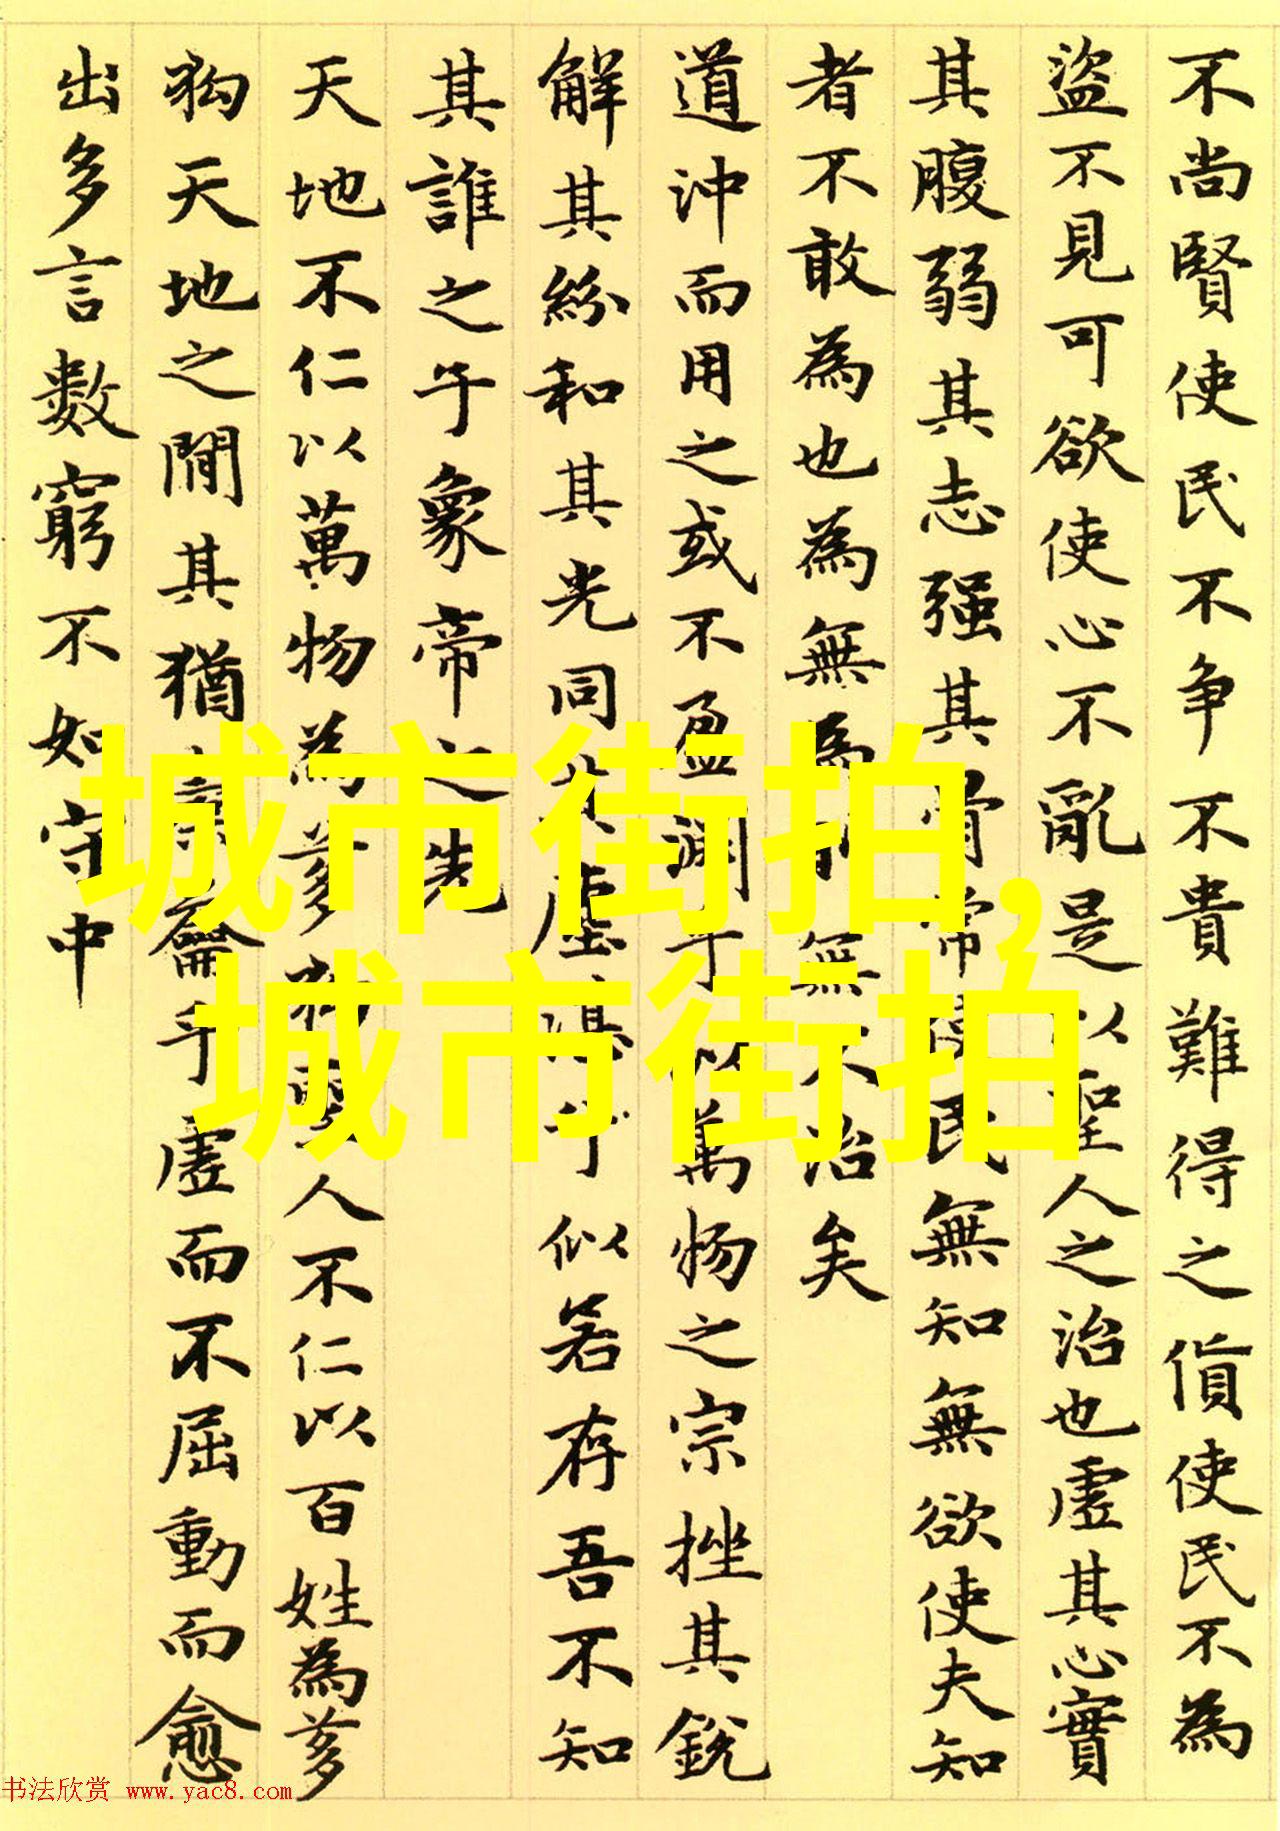 不尚賢使民不争不貴難得之貨使民不為
盜不見可欲使心不亂是以聖人之治也虛其心實
其腹弱其志强其骨常使民無知無欲使夫知
者不敢為也為無為則無不治矣
道沖而用之或不盈淵乎似萬物之宗挫其銳
解其紛和其光同其塵湛乎似若存吾不知
其誰之子象帝之先
天地不仁以萬物為芻狗聖人不仁以百姓為芻
狗天地之間其猶橐籥乎虛而不屈動而愈
出多言數窮不如守中
城市街拍,
城市街拍
书法欣赏 www.yac8.com